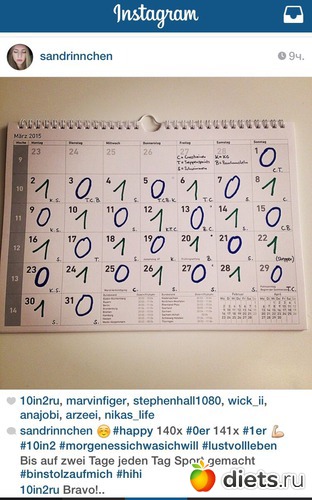 Instagram
sandrinnchen 9ч.
März 2015
Woche Montag Dienstag Mittwoch Donnerstag Freitag Samstag Sonntag
9 23 24 25 26 27 28 1 0
C.T.
10 2 1 3 0 4 1 5 0 6 1 7 0 8 1
K.S. T.C.B. S. T.C.B.K. S. S.
11 9 0 10 1 11 0 12 1 13 0 14 1 15 0
K.S. S. K.T.C. B.C. S. C.B.
12 16 1 17 0 18 1 19 0 20 1 21 0 22 1
S. S. B. S.
13 23 0 24 1 25 0 26 1 27 0 28 1 29 0
K.S. C. S. S. S. T.C.
14 30 1 31 0
S. S.
10in2ru, marvinfiger, stephenhall1080, wick_ii,
anajobi, arzeei, nikas_life
sandrinnchen ☺️#happy 140x #0er 141x #1er 💪
#10in2 #morgenessichwasichwill #lustvollleben
Bis auf zwei Tage jeden Tag Sport gemacht
#binstolzaufmich #hihi
10in2ru Bravo!..
diets.ru